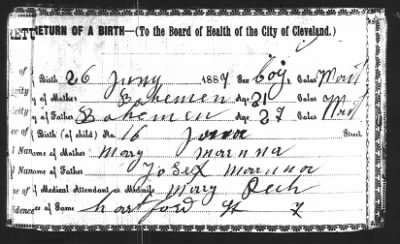 RETURN OF A BIRTH—(To the Board of Health of the City of Cleveland.)
of Birth 26 Juny 1884 Sex Boy Color Whit
y of Mother Bohemen Age 21 Color Whit
y of Father Bohemen Age 27 Color
ce of Birth (of child) No. 16 Street
Name of Mother Mary Marunna
Name of Father Josef Marunna
f Medical Attendant or Midwife Mary Pech
idence of Same Hartford